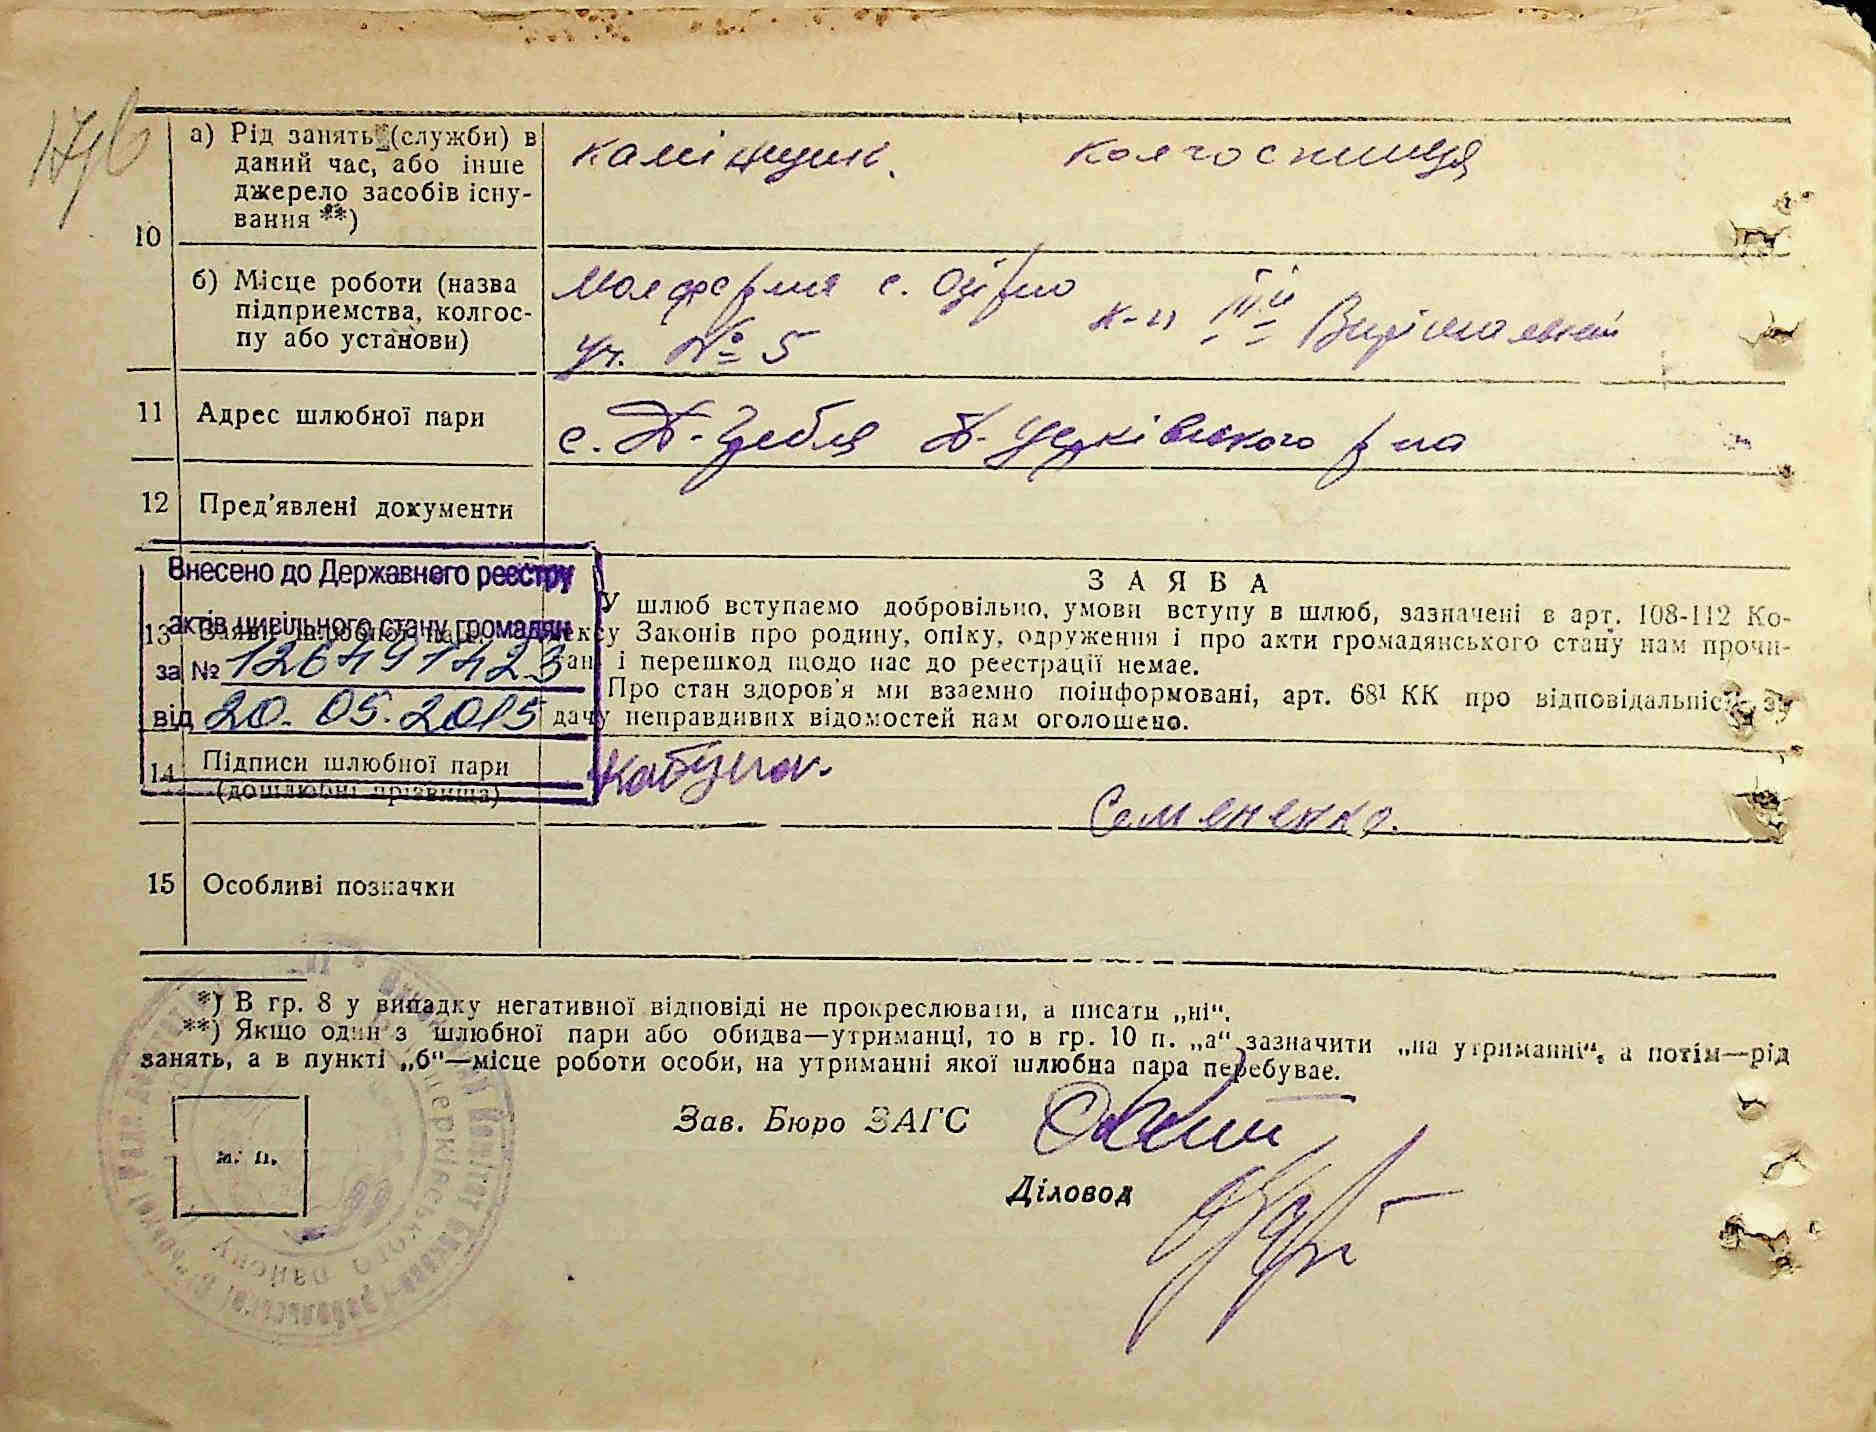 а) Рід занять (служби) в
даний час, або інше
джерело засобів існу-
вання **)
10
колгоспниця
б) Місце роботи (назва
підприємства, колгос-
пу або установи)
Молферма с.
уч. № 5
к-п ІІІй Вирішальний
11 Адрес шлюбної пари
с. Б-Гребля Б-Церківського р-на
12 Пред'явлені документи
Внесено до Державного реєстру
актів цивільного стану громадян
за № 126491423
від 20.05.2015
13
З А Я В А
У шлюб вступаемо добровільно, умови вступу в шлюб, зазначені в арт. 108-112 Ко-
дексу Законів про родину, опіку, одруження і про акти громадянського стану нам прочи-
тані і перешкод щодо нас до реєстрації немае.
Про стан здоров'я ми взаемно поінформовані, арт. 68¹ КК про відповідальність за
дачу неправдивих відомостей нам оголошено.
14 Підписи шлюбної пари
(дошлюбні прізвища)
Семененко.
15 Особливі позначки
*) В гр. 8 у випадку негативної відповіді не прокреслювати, а писати „ні“.
**) Якщо один з шлюбної пари або обидва—утриманці, то в гр. 10 п. „а“ зазначити „на утриманні“, а потім—рід
занять, а в пункті „б“—місце роботи особи, на утриманні якої шлюбна пара перебувае.
Зав. Бюро ЗАГС
м. п.
Діловод